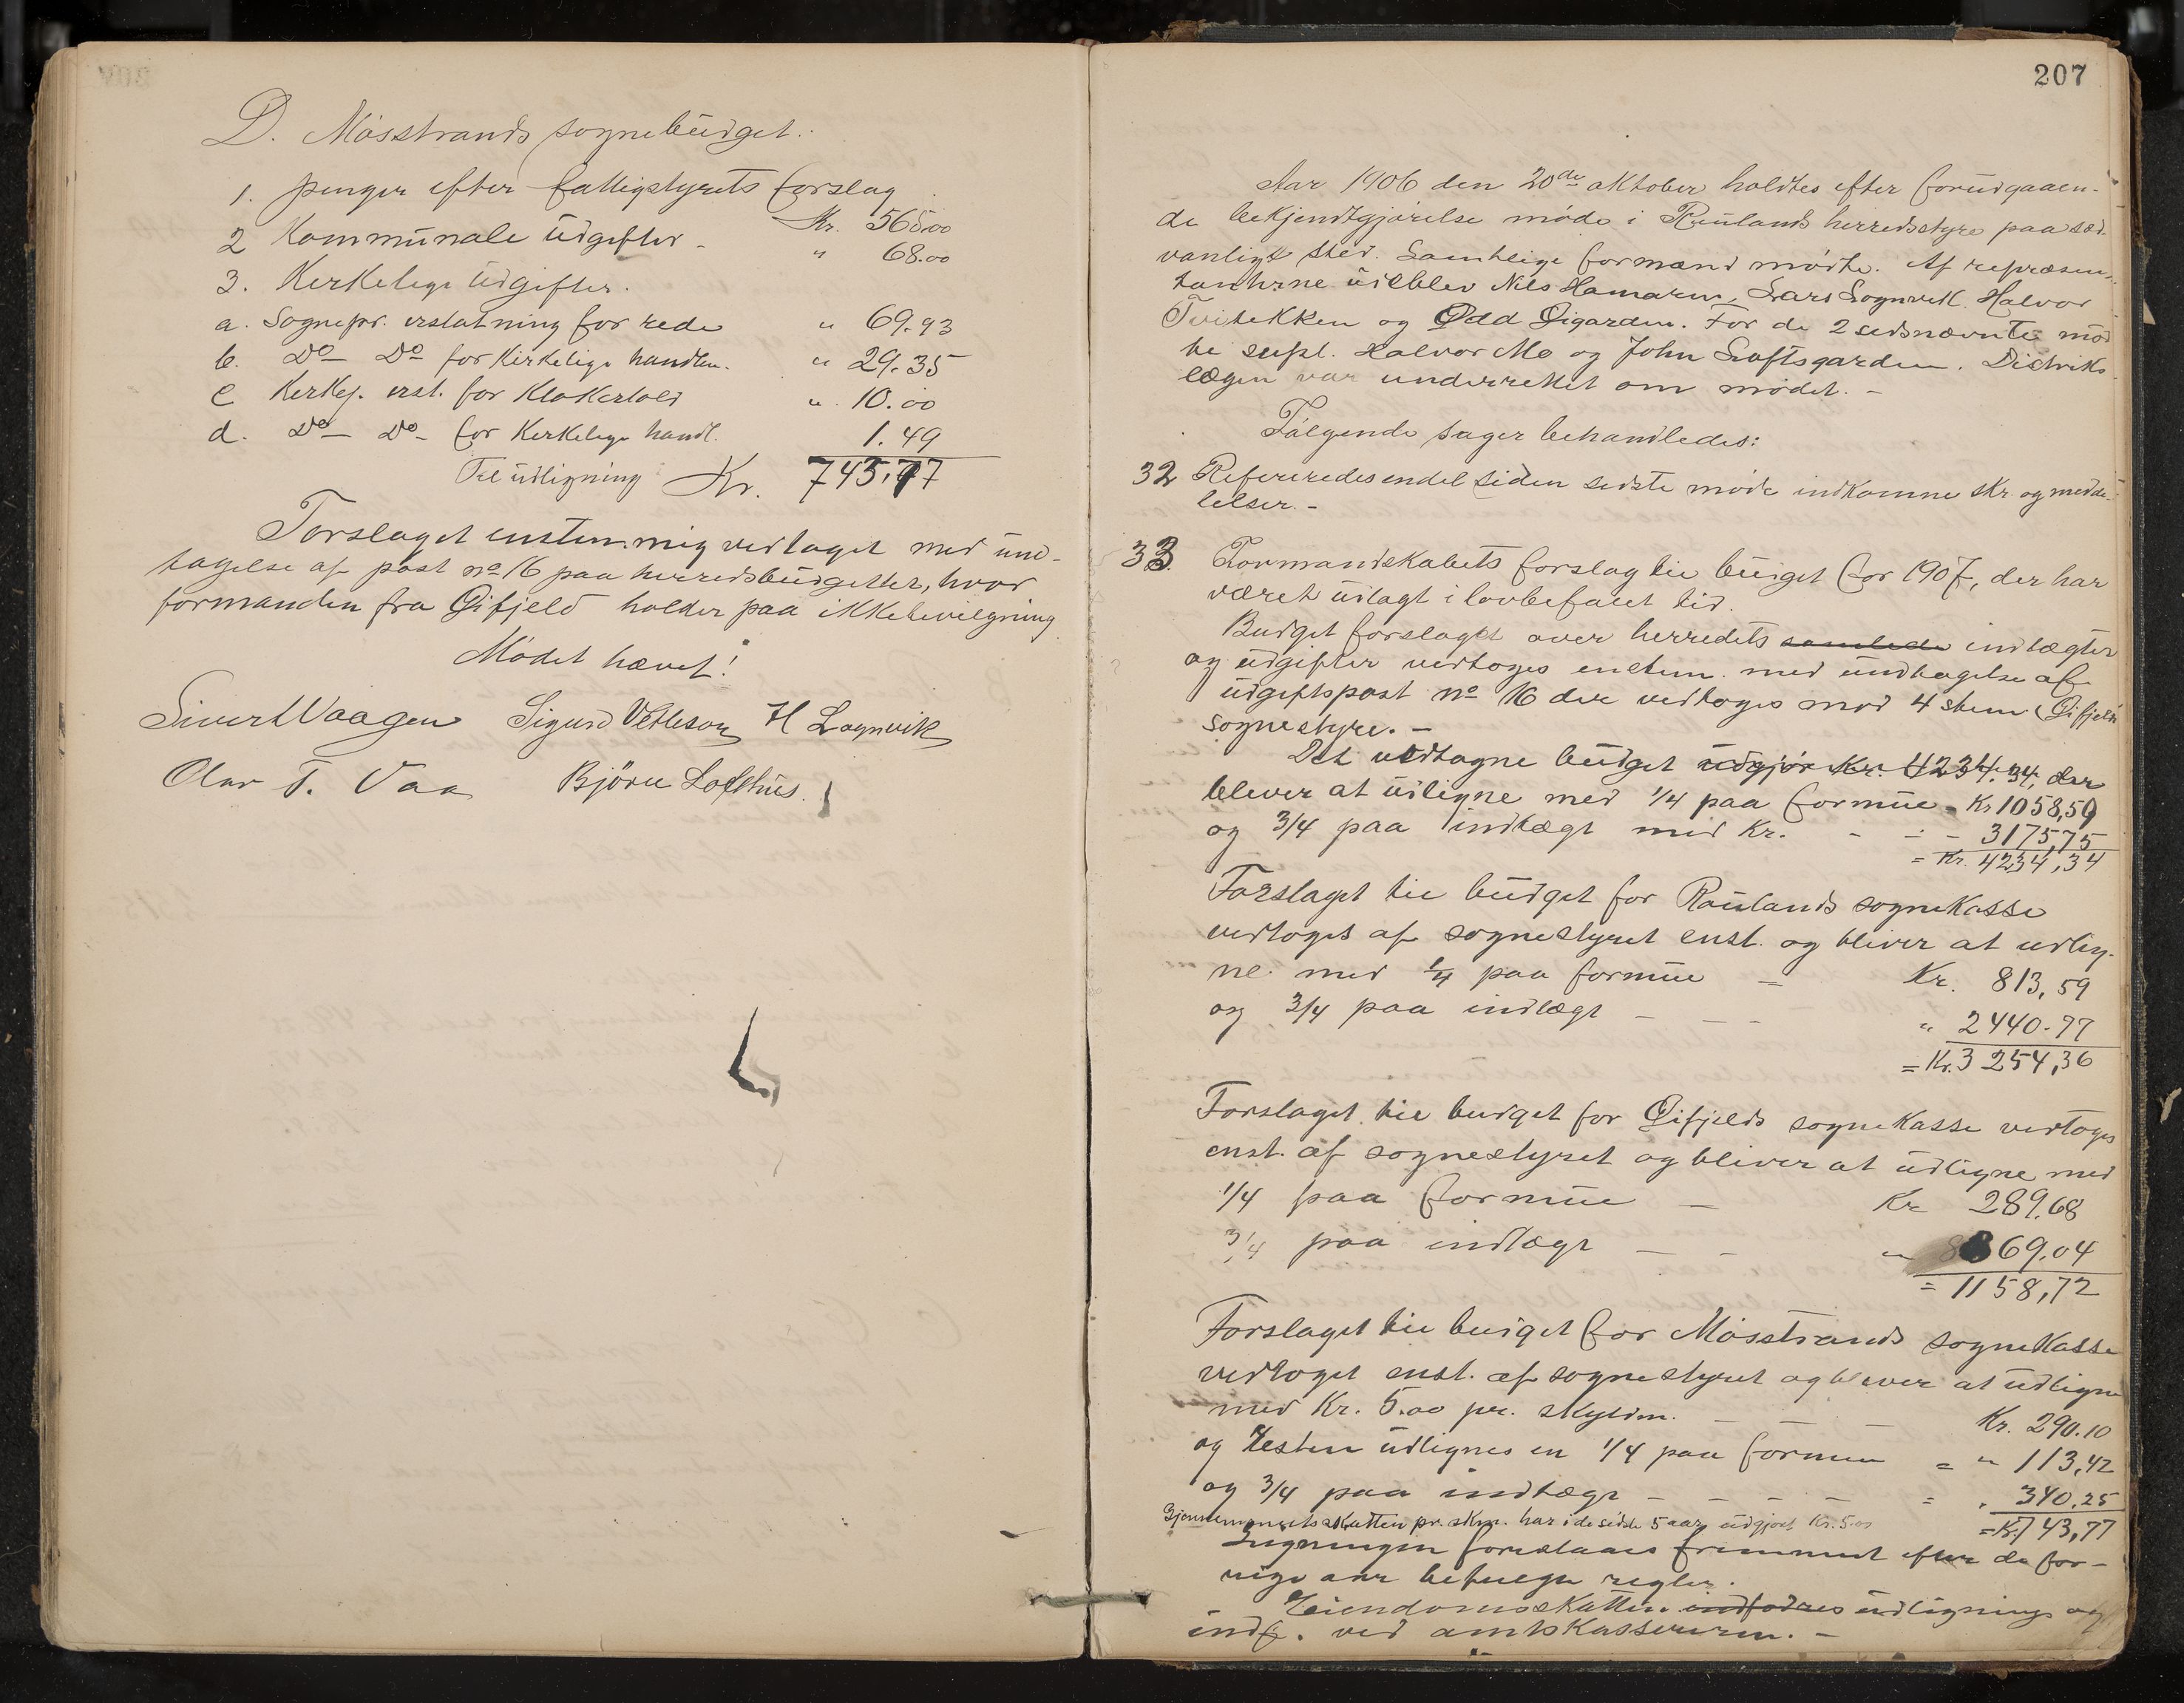 D. Mösstrands sognebudget.
1. penger efter fattigstyrets forslag
Kr. 565.00
2 Kommunale udgifter - " 68.00
3. Kirkelige udgifter.
a. Sognepr. erstatning for rede " 69.93
b. Do Do for kirkelige handlin. " 29.35
c Kirkej. erst. for Klokkertold " 10.00
d. Do Do for Kirkelige handl. 1.49
Til udligning Kr. 743.77
Forslaget enstemmig vedtaget med und-
tagelse af post no 16 paa herredsbudgettet, hvor
formanden fra Øifjeld holder paa ikkebevilgning
Mødet hævet!
Sivert Vaagen Sigurd Vetleson H Lognvik
Olav T. Vaa Björn Lofthus.
207
Aar 1906 den 20de oktober holdtes efter forudgaaen-
de bekjendtgjørelse møde i Raulands herredsstyre paa sæd-
vanligt sted. Samtlige formænd mødte. Af repræsen-
tanterne udeblev Nils Hamaren, Lars Lognvik Halvor
Tvitekken og Odd Øigarden. For de 2 sidsnævnte mød
te supl. Halvor Mo og John Loftsgarden. Distriks-
lægen var underrettet om mødet. -
Følgende sager behandledes:
32 Refereredes endel siden sidste møde indkomne skr. og medde-
lelser. -
33. Formandskabets forslag til budget for 1907, der har
været udlagt i lovbefalet tid.
Budget forslaget over herredets samlede indtægter
og udgifter vedtoges enstem. med undtagelse af
udgiftspost no 16 der vedtoges mod 4 stem (Øifjelds
sognestyre. -
Det vedtagne budget udgjør Kr. 4234.34, der
blever at udligne med 1/4 paa formue = Kr 1058,59
og 3/4 paa indtægt med Kr. - - - 3175,75
= Kr. 4234,34
Forslaget til budget for Raulands sognekasse
vedtoges af sognestyret enst. og bliver at udlig-
ne med 1/4 paa formue - Kr. 813,59
og 3/4 paa indtægt - - - " 2440.77
= Kr. 3254,36
Forslaget til budget for Øifjelds sognekasse vedtoges
enst. af sognestyret og bliver at udligne med
1/4 paa formue - Kr 289.68
3/4 paa indtægt - - " 869.04
= 1158,72
Forslaget til budget for Mösstrands sognekasse
vedtoget enst. af sognestyret og blever at udligne
med Kr. 5.00 pr. skyldm. - - - Kr. 290.10
og resten udlignes en 1/4 paa formue = " 113,42
og 3/4 paa indtægt - - - - = " 340.25
Gjennemsnitsskatten pr. skm. har i de sidste 5 aar udgjort Kr. 5.00 = Kr. 743,77
Ligningen foreslaaes fremmet efter de for-
rige aar befulgte regler.
Eiendomsskatten indfodres udlignings og
indf. ved amtskassereren. -